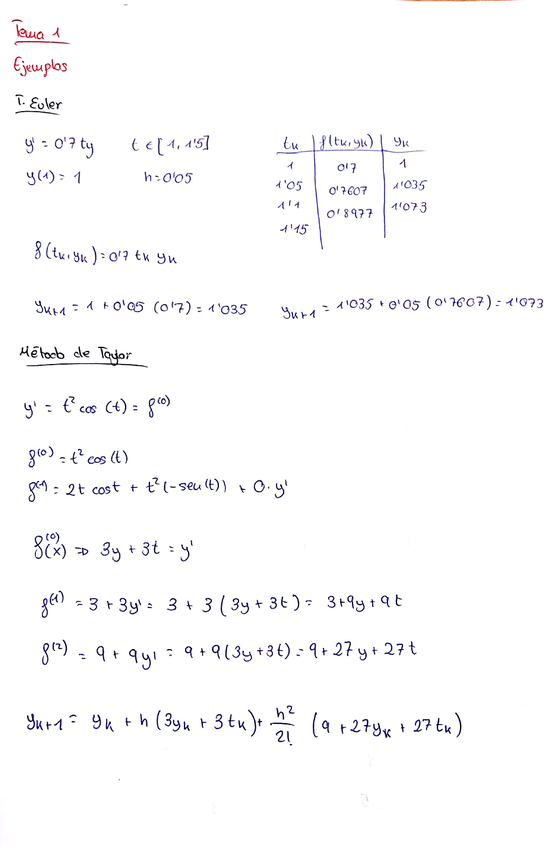 Tema 1
Ejemplos
T. Euler
y' = 0'7 ty t ∈ [1, 1'5]
y(1) = 1 h = 0'05
tk | f(tk, yk) | yk
1 | 0'7 | 1
1'05 | 0'7607 | 1'035
1'1 | 0'8977 | 1'073
1'15
f(tk, yk) = 0'7 tk yk
yk+1 = 1 + 0'05 (0'7) = 1'035 yk+1 = 1'035 + 0'05 (0'7607) = 1'073
Método de Taylor
y' = t² cos (t) = f⁽⁰⁾
f⁽⁰⁾ = t² cos (t)
f⁽¹⁾ = 2t cos t + t² (-sen(t)) + 0 · y'
f⁽⁰⁾(x) ⇒ 3y + 3t = y'
f⁽¹⁾ = 3 + 3y' = 3 + 3 (3y + 3t) = 3 + 9y + 9t
f⁽²⁾ = 9 + 9y' = 9 + 9(3y + 3t) = 9 + 27y + 27t
yk+1 = yk + h (3yk + 3tk) + h²/2! (9 + 27yk + 27tk)